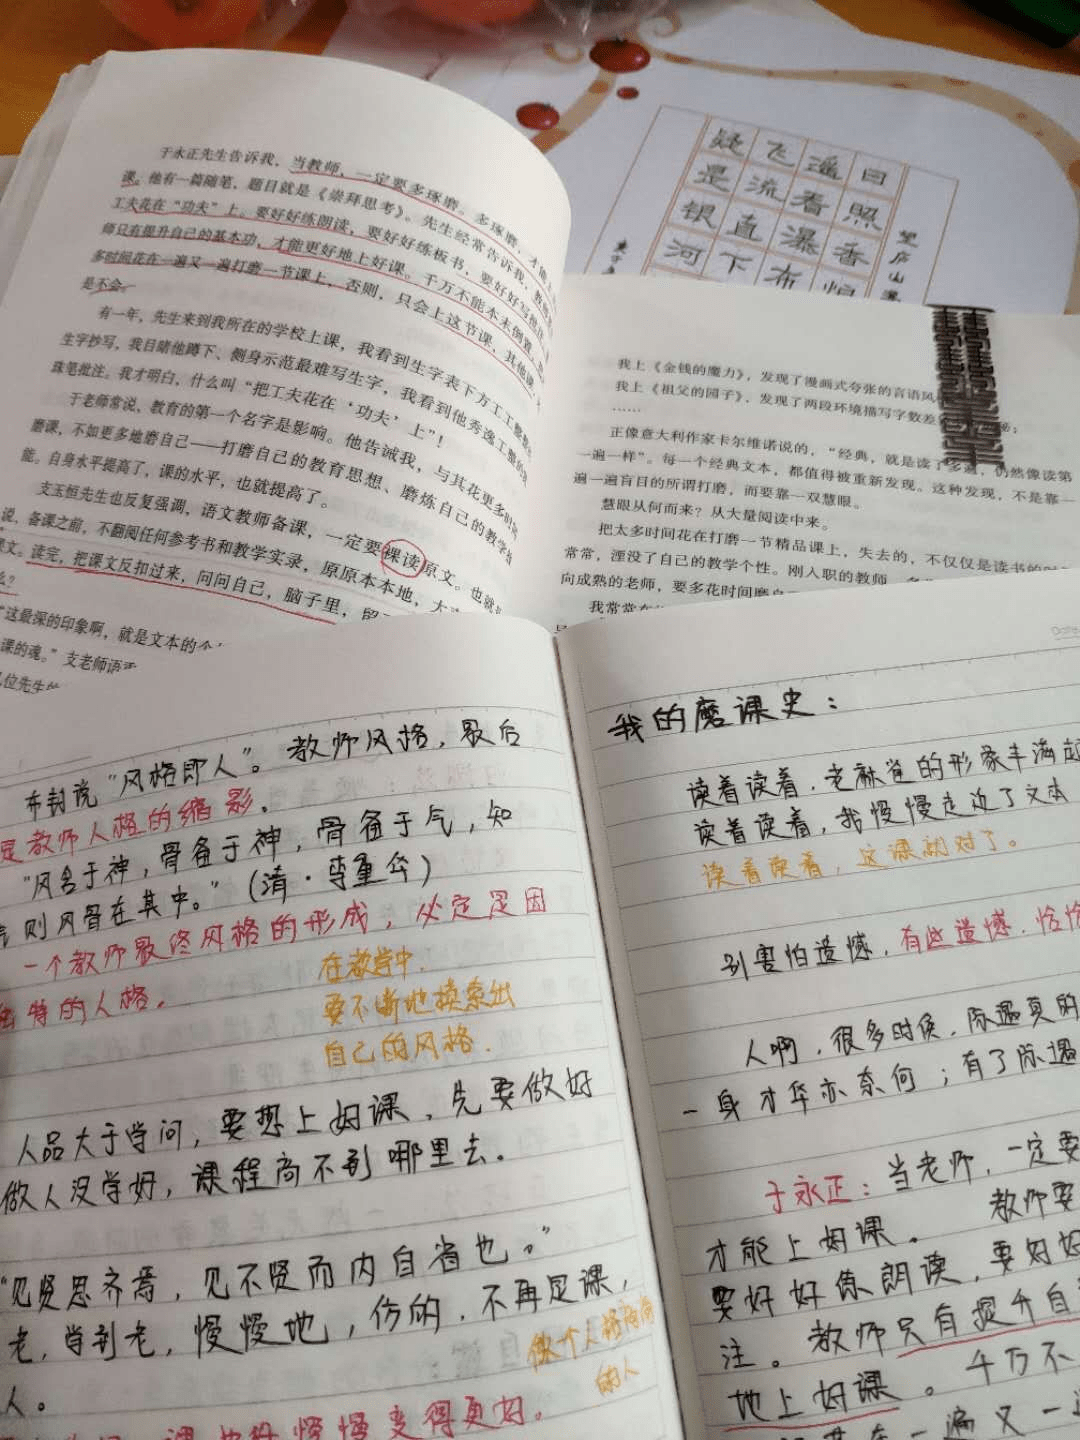 于永正先生告诉我，当教师，一定要多琢磨。多琢磨，才能上
课。他有一篇随笔，题目就是《崇拜思考》。先生经常告诉我，教
工夫花在“功夫”上。要好好练朗读，要好好练板书，要好好写
师只有提升自己的基本功，才能更好地上好课。千万不能本末倒置，
多时间花在一遍又一遍打磨一节课上，否则，只会上这节课，其他课
是不会。
有一年，先生来到我所在的学校上课，我看到生字表下方工工整整
生字抄写，我目睹他蹲下、侧身示范最难写生字，我看到他秀逸工整的
珠笔批注。我才明白，什么叫“把工夫花在‘功夫’上”！
于老师常说，教育的第一个名字是影响。他告诫我，与其花更多时间
磨课，不如更多地磨自己——打磨自己的教育思想、磨炼自己的教学
能。自身水平提高了，课的水平，也就提高了。
支玉恒先生也反复强调，语文教师备课，一定要裸读原文。也就
说，备课之前，不翻阅任何参考书和教学实录，原原本本地，大
文。读完，把课文反扣过来，问问自己，脑子里，留
么？
“这最深的印象啊，就是文本的
课的魂。”支老师语
位先生的
疑飞遥日
是流看照
银直瀑香
河下布烟
望庐山瀑
我上《金钱的魔力》，发现了漫画式夸张的言语风
我上《祖父的园子》，发现了两段环境描写字数差
……
正像意大利作家卡尔维诺说的，“经典，就是读了多遍，仍然像读第
一遍一样”。每一个经典文本，都值得被重新发现。这种发现，不是靠一
遍一遍盲目的所谓打磨，而要靠一双慧眼。
慧眼从何而来？从大量阅读中来。
把太多时间花在打磨一节精品课上，失去的，不仅仅是读书的时
常常，湮没了自己的教学个性。刚入职的教师，
向成熟的老师，要多花时间磨自
我常常在
布封说“风格即人”。教师风格，最后
是教师人格的缩影。
“风含于神，骨备于神，骨备于气，知
则风骨在其中。”（清·李重华）
一个教师最终风格的形成，必定是因
独特的人格。
在教学中，
要不断地摸索出
自己的风格.
人品大于学问，要想上好课，先要做好
做人没学好，课程高不到哪里去。
“见贤思齐焉，见不贤而内自省也。”
老，学到老，慢慢地，你的，不再是课，
人。
做个人格
的人
课也好慢慢变得更好。
我的磨课史：
读着读着，老麻雀的形象丰满
读着读着，我慢慢走进了文本
读着读着，这课就对了。
别害怕遗憾，有些遗憾，恰恰
人啊，很多时候，际遇真的
一身才华亦奈何；有了际遇
于永正：当老师，一定要
才能上好课。 教师要
要好好练朗读，要好好
注。教师只有提升自
地上好课。千万不
一遍又一